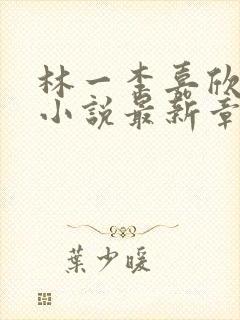 林一李嘉欣
小說最新章
葉少暖